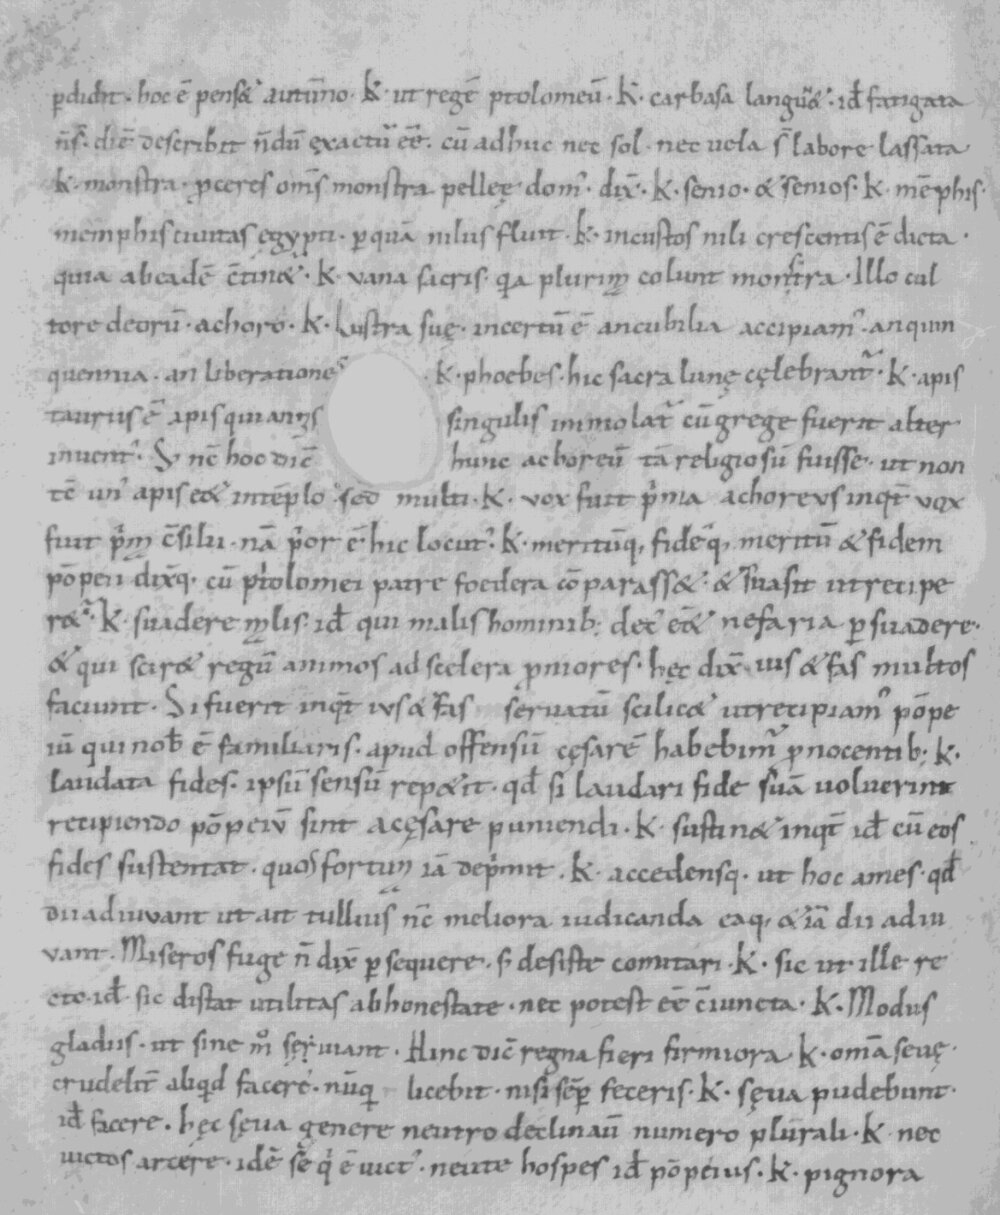 p̄didit · hoc ē pensa& autūno · K · ut regē ptolomeū · K · carbasa langu& · id ē fatigata
n̄ sr̄ · diē describit n̄dū exactū eē · cū adhuc nec sol · nec uela sī labore lassata
K · monstra · ꝓceres om̄s monstra pelleę dom' · dix̄ · K · senio · & senios · K · mēphis ·
memphis ciuitas egypti · ꝑ quā nilus fluit · K · incustos nili crescentis ē dicta ·
quia ab eadē c̄tin& · K · uana sacris · q̄a plurim colunt monstra · Illo cul
tore deorū · achoro · K · Lustra suę · incertū ē an cubilia accipiam' · an quin
quennia · an liberatione K · phoebes · hic sacra lunę cęlebrant' · K · apis
taurus ē apis qui annis singulis immolat' cū grege fuerit alter
inuent' · S; nc̄ hoc dic̄ hunc achoreū tā religiosū fuisse · ut non
tc̄ un' apis eēt in tēplo sed multi · K · uox fuit p̄ma achoreus inq̄t uox
fuit p̄m c̄silii · nā p̄or ē hic locut' · K · meritūq, fidēq, meritū & fidem
pōpeii dix̄q, cū ptolomei patre foedera cōparass& · & suasit ut recipe
r&' · K · suadere mlis · id ē qui malis hominib; dec' eēt nefaria ꝑsuadere ·
& qui scir& regū animos ad scelera ꝓniores · hęc dix̄ · ius & fas multos
faciunt · Si fuerit inq̄t ius & fas seruatū scilic& ut recipiam' pōpe
iū qui nob̄ ē familiaris · apud offensū cęsarē habebim' ꝓ nocentib; K ·
laudata fides · ipsū sensū rep&it · qd̄ si laudari fide suā uoluerint
recipiendo pōpeiū sint a cęsare puniendi · K · sustin& inq̄t id ē cū eos
fides sustentat · quos fortun iā dep̄mit · K · accedensq, ut hoc ames · qd̄
dii adiuuant ut ait tullius nc̄ meliora iudicanda eaq, & iā dii adiu
uant · Miseros fuge n̄ dix̄ ꝑsequere · s; desiste comitari · K · sic ut ille re
cto · id ē sic distat utilitas ab honestate · nec potest eē c̄iuncta · K · Modus
gladiis · ut sine m° sęuiant · Hinc dic̄ regna fieri firmiora K · omīa seuę ·
crudelit̄ aliqd facere · nūq licebit · nisi sēꝑ feceris · K · sęua pudebunt ·
id ē facere · hęc sęua genere neutro declinauī numero plurali · K · nec
uictos arcere · idē sē q̄ ē uict' · neute hospes id ē pōpeius · K · pignora